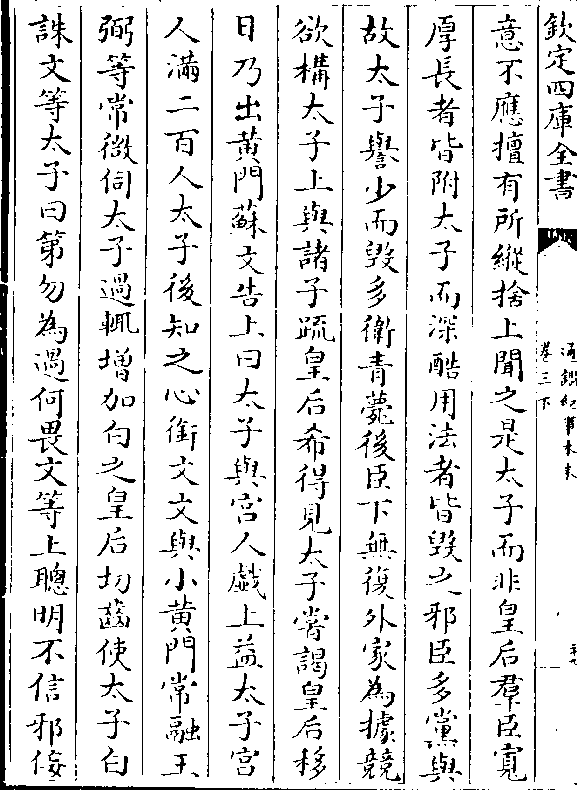 欽定四庫全書
通鑑紀事本末
卷三下
意不應擅有所縱捨上聞之是太子而非皇后羣臣寬
厚長者皆附太子而深酷用法者皆毀之邪臣多黨與
故太子譽少而毀多衛青薨後臣下無復外家為據競
欲構太子上與諸子疏皇后希得見太子嘗謁皇后移
日乃出黄門蘇文告上曰太子與宫人戲上益太子宫
人滿二百人太子後知之心銜文文與小黄門常融王
弼等常微伺太子過輒增加白之皇后切齒使太子白
誅文等太子曰第勿為過何畏文等上聰明不信邪佞